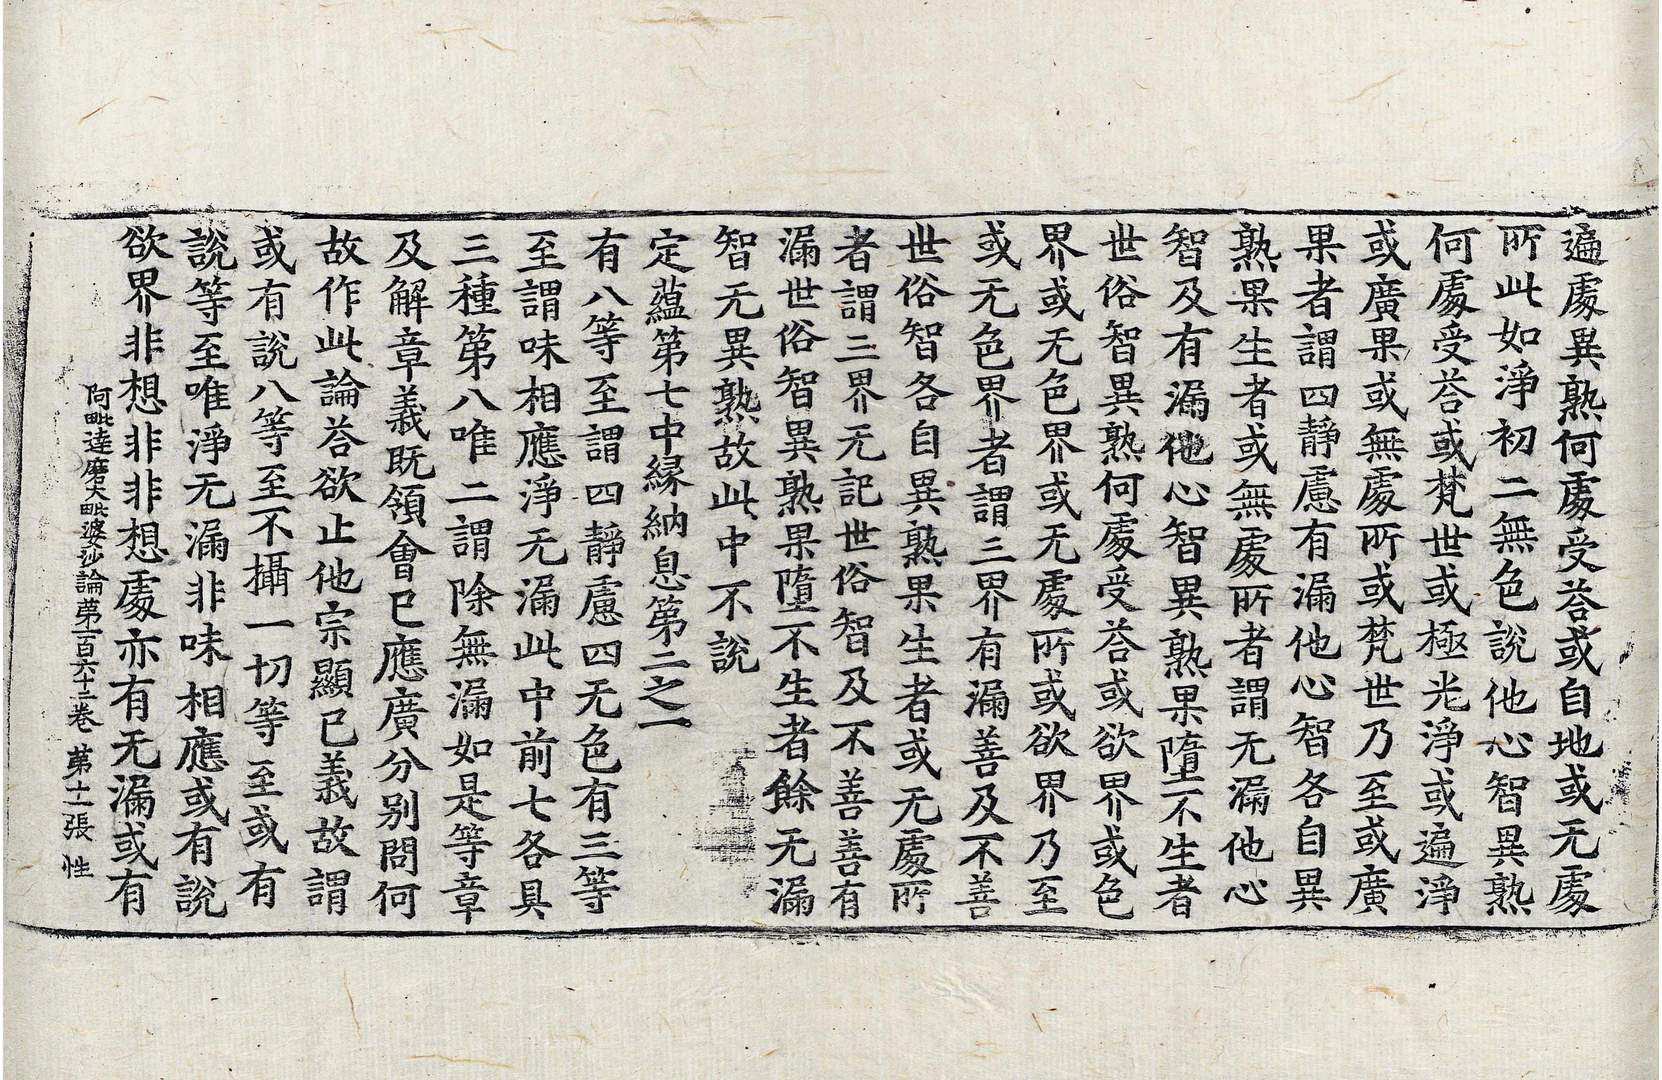 遍處異熟何處受荅或自地或无處
所此如淨初二無色說他心智異熟
何處受荅或梵世或極光淨或遍淨
或廣果或無處所或梵世乃至或廣
果者謂四靜慮有漏他心智各自異
熟果生者或無處所者謂无漏他心
智及有漏他心智異熟果墮不生者
世俗智異熟何處受荅或欲界或色
界或无色界或无處所或欲界乃至
或无色界者謂三界有漏善及不善
世俗智各自異熟果生者或无處所
者謂三界无記世俗智及不善善有
漏世俗智異熟果墮不生者餘无漏
智无異熟故此中不說
定蘊第七中緣納息第二之一
有八等至謂四靜慮四无色有三等
至謂味相應淨无漏此中前七各具
三種第八唯二謂除無漏如是等章
及解章義既領會已應廣分別問何
故作此論荅欲止他宗顯已義故謂
或有說八等至不攝一切等至或有
說等至唯淨无漏非味相應或有說
欲界非想非非想處亦有无漏或有
阿毗達磨大毗婆沙論第一百六十二卷 第十一張 性